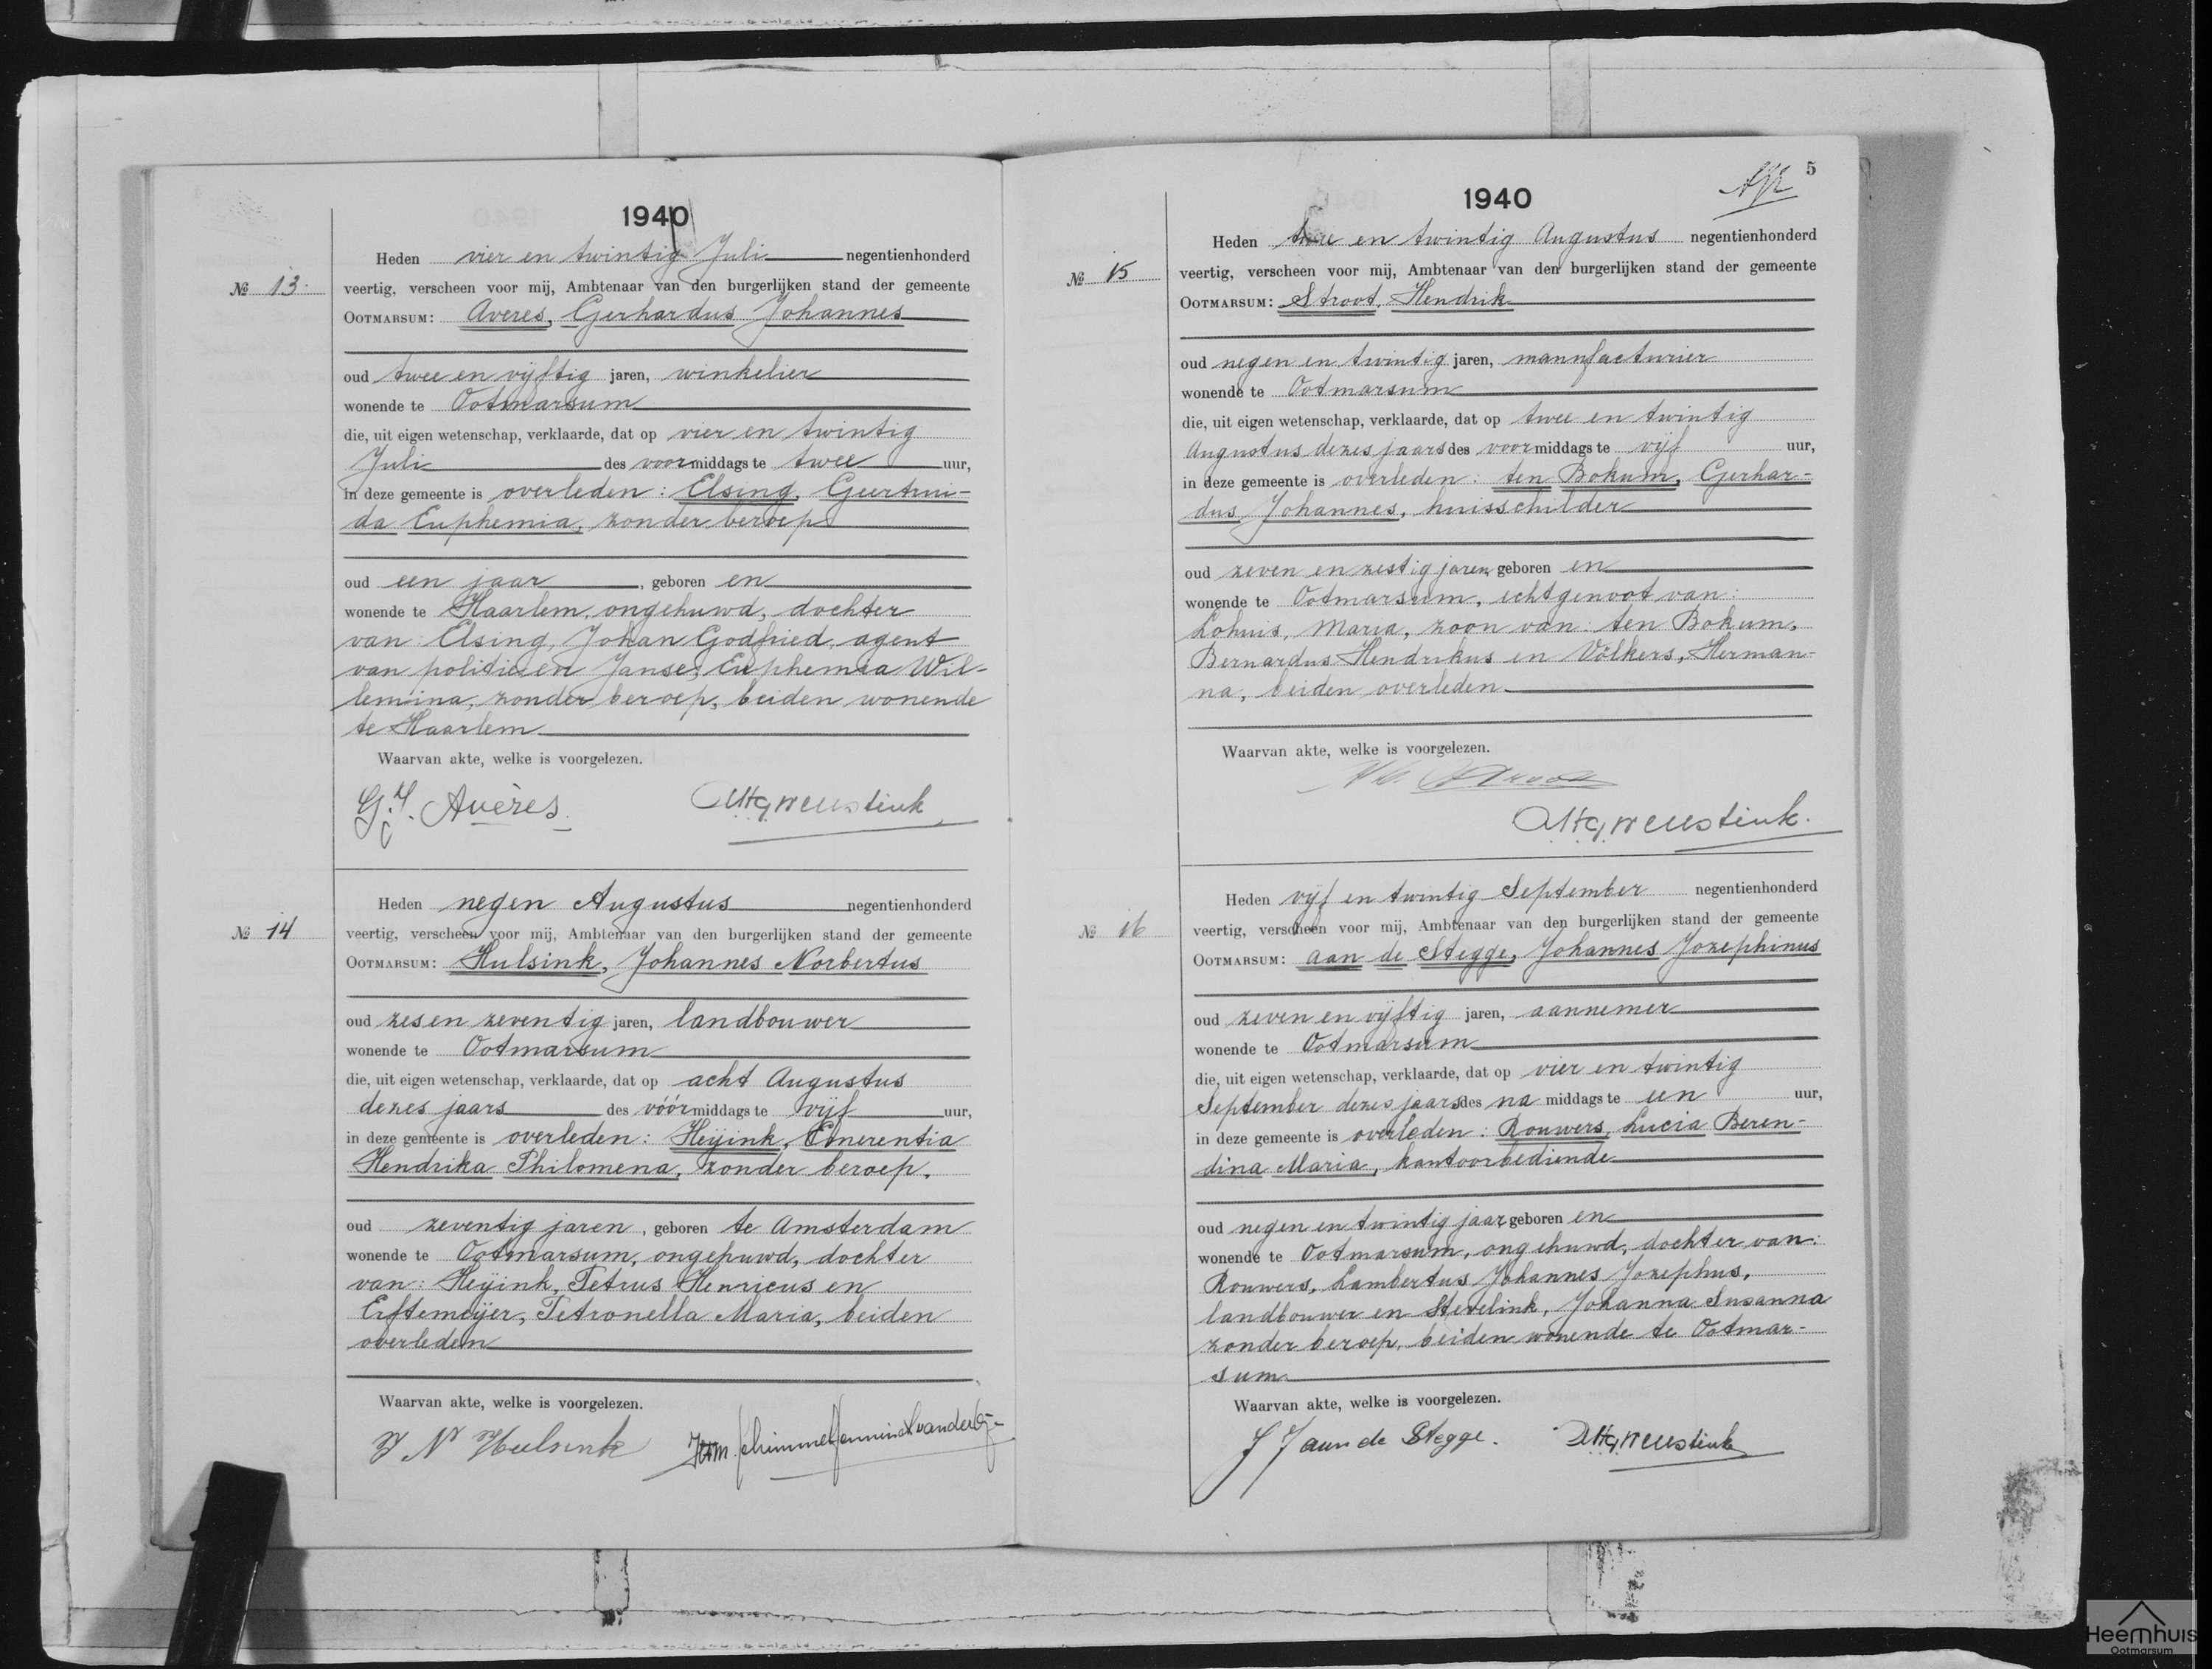 1940
Heden vier en twintig Juli negentienhonderd
№ 13.
veertig, verscheen voor mij, Ambtenaar van den burgerlijken stand der gemeente
Ootmarsum: Averes, Gerhardus Johannes
oud twee en vijftig jaren, winkelier
wonende te Ootmarsum
die, uit eigen wetenschap, verklaarde, dat op vier en twintig
Juli des voormiddags te twee uur,
in deze gemeente is overleden: Elsing, Geertrui-
da Euphemia, zonder beroep
oud een jaar, geboren en
wonende te Haarlem, ongehuwd, dochter
van: Elsing, Johan Godfried, agent
van politie en Janse, Euphemia Wil-
lemina, zonder beroep, beiden wonende
te Haarlem
Waarvan akte, welke is voorgelezen.
G.J. Avères.
Heden negen Augustus negentienhonderd
№ 14
veertig, verscheen voor mij, Ambtenaar van den burgerlijken stand der gemeente
Ootmarsum: Hulsink, Johannes Norbertus
oud zes en zeventig jaren, landbouwer
wonende te Ootmarsum
die, uit eigen wetenschap, verklaarde, dat op acht Augustus
dezes jaars des vóórmiddags te vijf uur,
in deze gemeente is overleden: Heijink, Emerentia
Hendrika Philomena, zonder beroep.
oud zeventig jaren, geboren te Amsterdam
wonende te Ootmarsum, ongehuwd, dochter
van: Heijink, Petrus Henricus en
Erftemeijer, Petronella Maria, beiden
overleden
Waarvan akte, welke is voorgelezen.
J N Hulsink
5
1940
Heden twee en twintig Augustus negentienhonderd
№ 15
veertig, verscheen voor mij, Ambtenaar van den burgerlijken stand der gemeente
Ootmarsum: Stroot, Hendrik
oud negen en twintig jaren, manufacturier
wonende te Ootmarsum
die, uit eigen wetenschap, verklaarde, dat op twee en twintig
Augustus dezes jaars des voormiddags te vijf uur,
in deze gemeente is overleden: ten Bokum, Gerhar-
dus Johannes, huisschilder
oud zeven en zestig jaren geboren en
wonende te Ootmarsum, echtgenoot van:
Lohuis, Maria, zoon van: ten Bokum,
Bernardus Hendrikus en Völkers, Herman-
na, beiden overleden
Waarvan akte, welke is voorgelezen.
Heden vijf en twintig September negentienhonderd
№ 16
veertig, verscheen voor mij, Ambtenaar van den burgerlijken stand der gemeente
Ootmarsum: aan de Stegge, Johannes Jozephinus
oud zeven en vijftig jaren, aannemer
wonende te Ootmarsum
die, uit eigen wetenschap, verklaarde, dat op vier en twintig
September dezes jaars des na middags te een uur,
in deze gemeente is overleden: Rouwers, Lucia Beren-
dina Maria, kantoorbediende
oud negen en twintig jaar geboren en
wonende te Ootmarsum, ongehuwd, dochter van:
Rouwers, Lambertus Johannes Jozephus,
landbouwer en Stevelink, Johanna Susanna
zonder beroep, beiden wonende te Ootmar-
sum.
Waarvan akte, welke is voorgelezen.
J J aan de Stegge.
Heemhuis
Ootmarsum